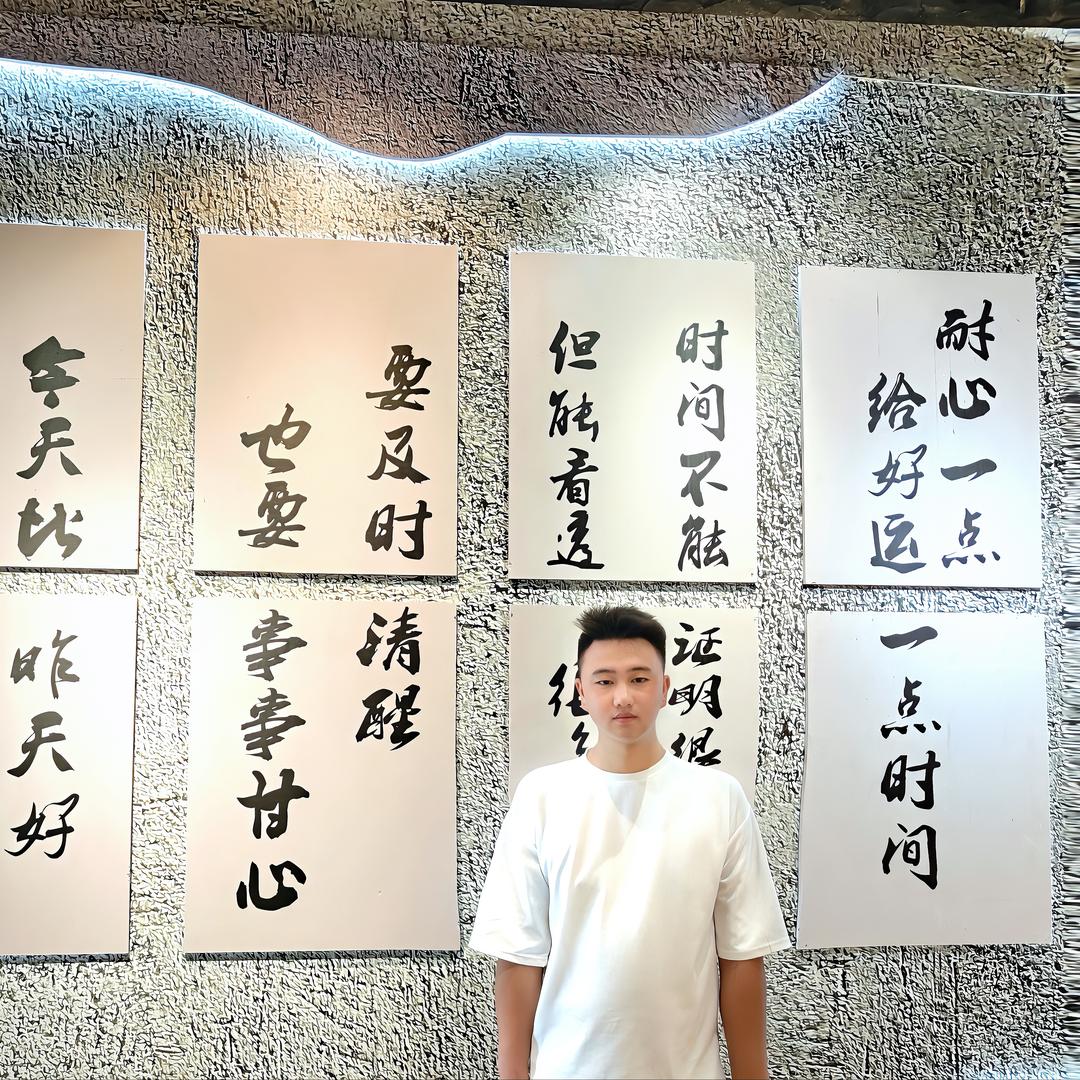 耐心一点
给好运
一点时间
时间不能
证明很
但能看透
要及时
清醒
也要
事事甘心
今天比
昨天好